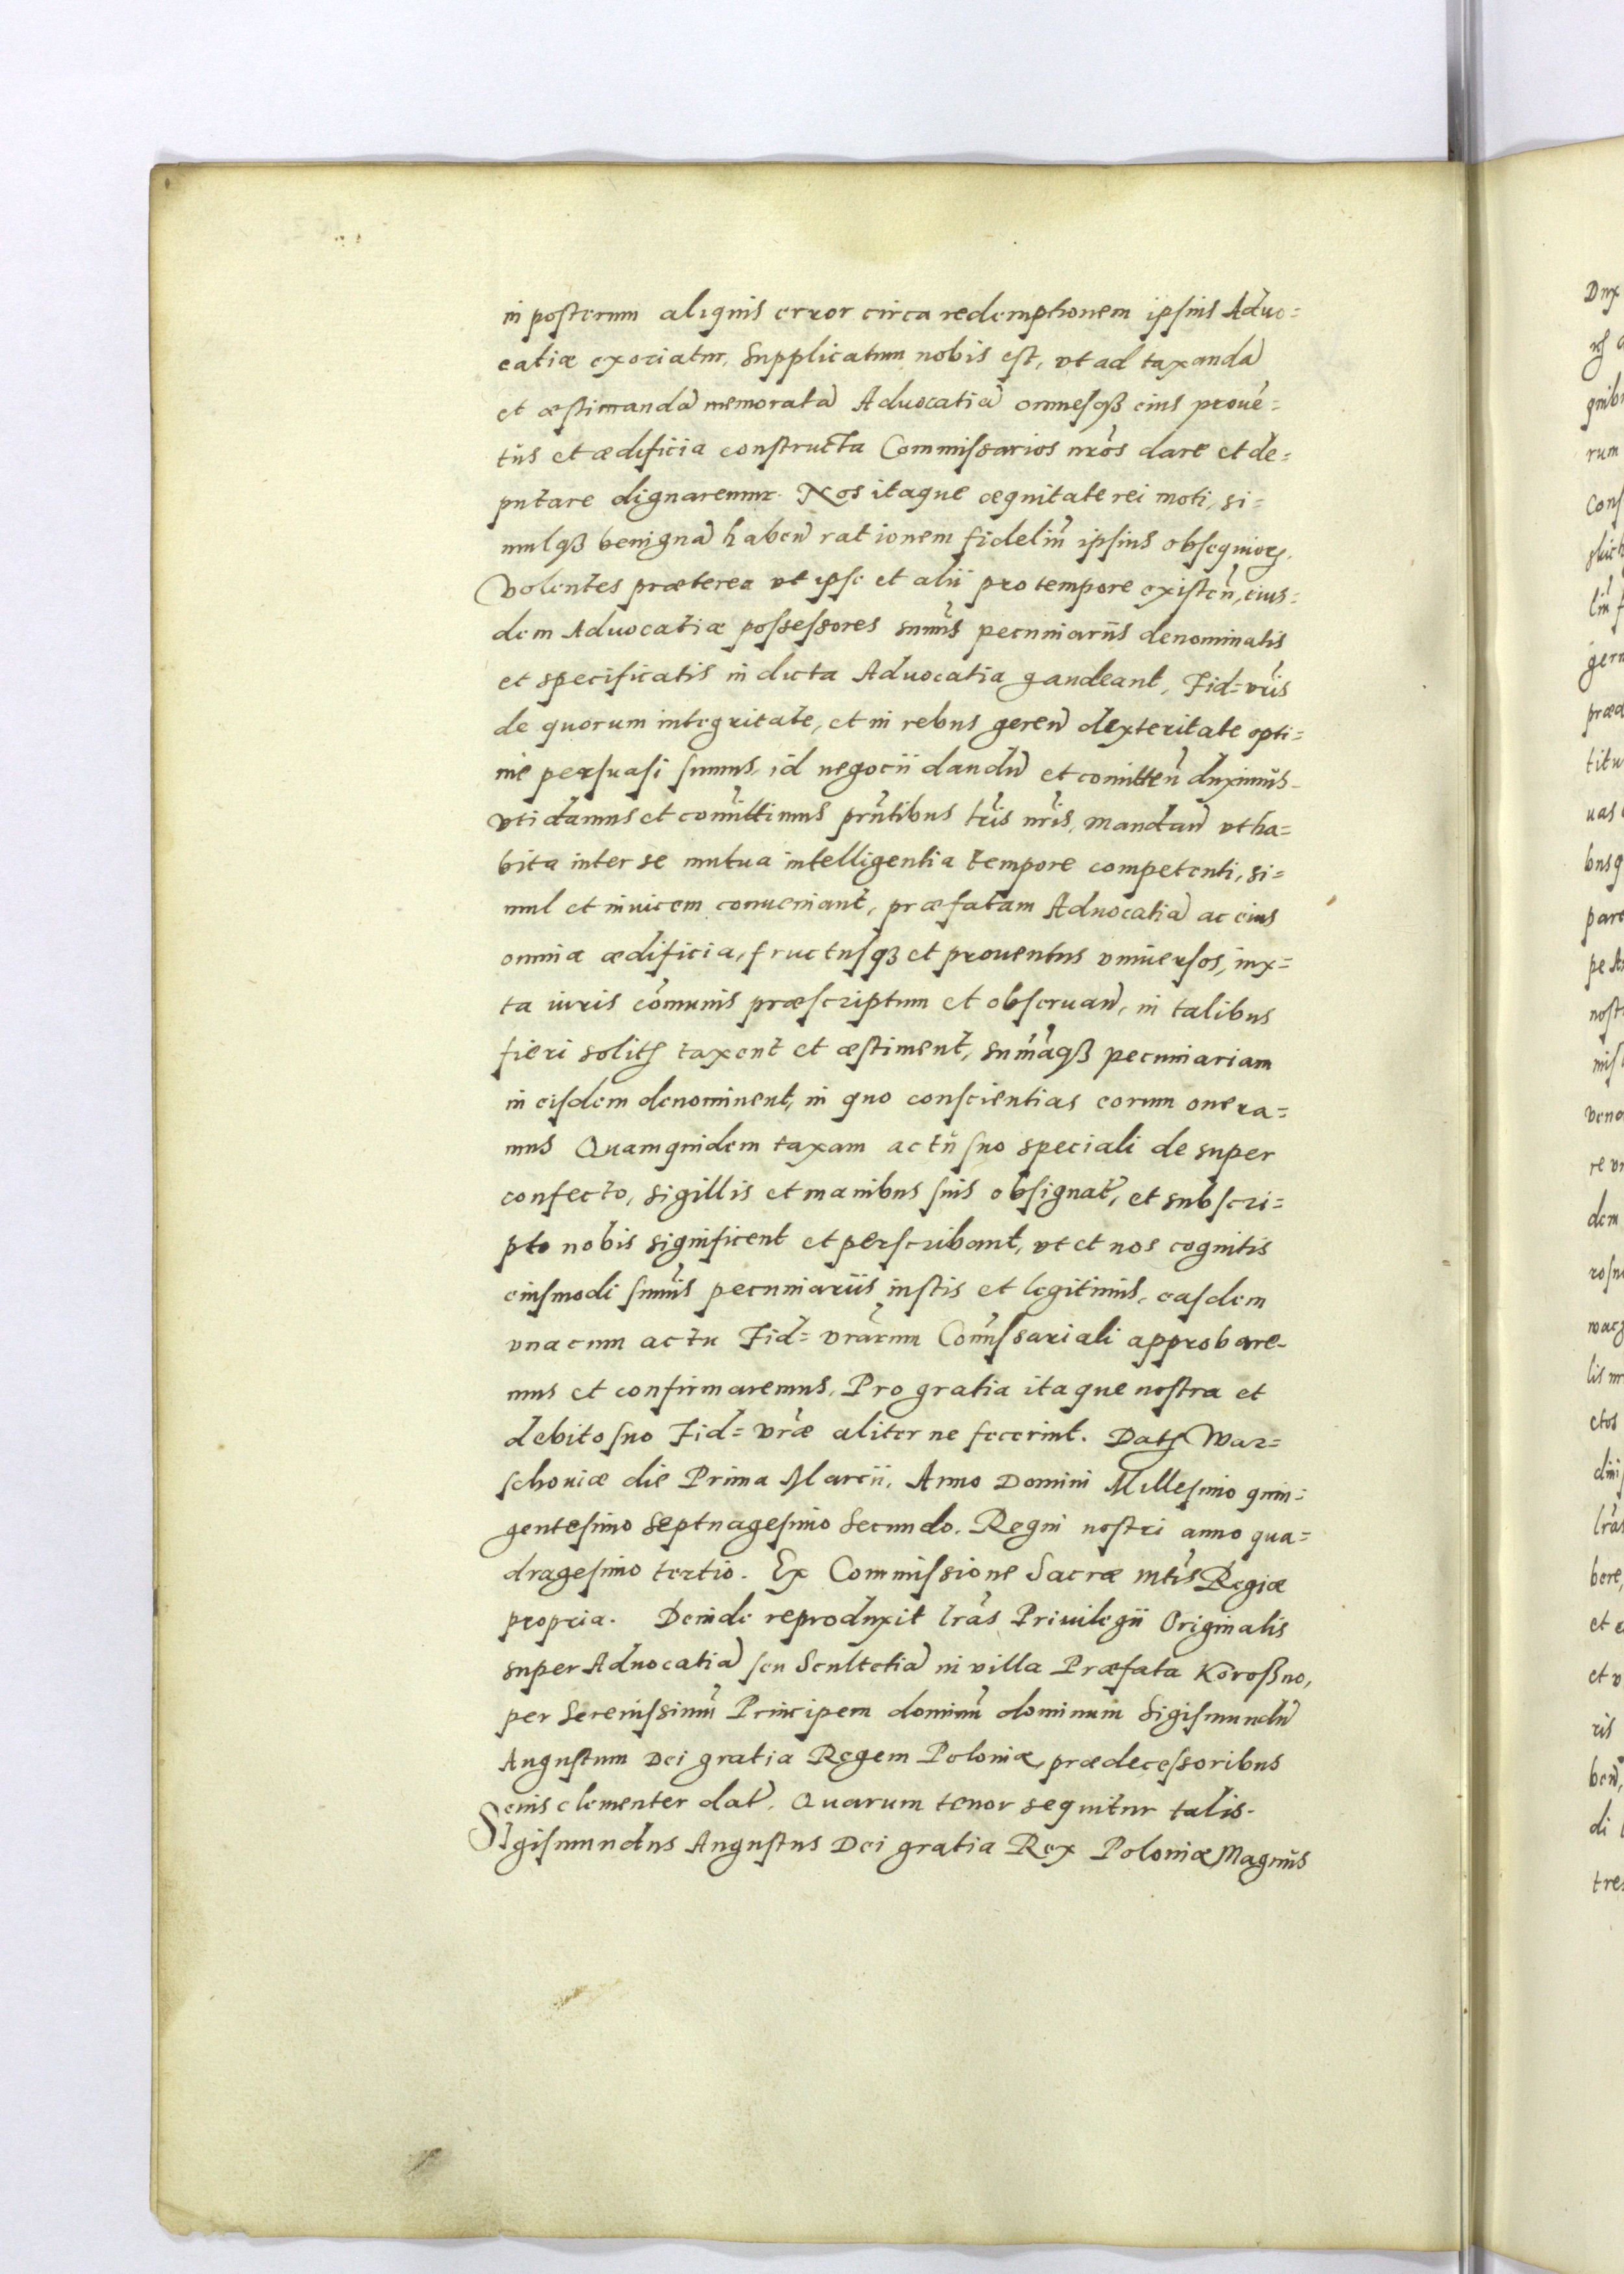 in posterum aliquis error circa redemptionem ipsius Aduo=
catiæ exoriatur, Supplicatum nobis est, vt ad taxandã
et æstimandã memoratã Aduocatiã omnesqꝫ eius prouẽ=
tus et ædificia constructa Commissarios nr̃os dare et de=
putare dignaremur. Nos itaque æquitate rei moti, si=
mulqꝫ benignã haben̄ rationem fideliũ ipsius obsequioꝝ.
Volentes præterea vt ipse et alii pro tempore existen̄, eius=
dem Aduocatiæ possessores sum̃is pecuniariis denominatis
et specificatis in dicta Aduocatia gaudeant, Fid= vr̃is
de quorum integritate, et in rebus geren̄ dexteritate opti=
me persuasi sumus, id negocii dandũ et com̃itten̄ duximus
vti damus et com̃ittimus prñtibus lr̃is nr̃is, mandan̄ vt ha=
bita inter se mutua intelligentia tempore competenti, si=
mul et inuicem conueniant, præfatam Aduocatiã ac eius
omnia ædificia, fructusqꝫ et prouentus vniuersos, iux=
ta iuris com̃unis præscriptum et obseruan̄, in talibus
fieri solitꝭ taxent et æstiment, sum̃ãqꝫ pecuniariam
in eisdem denominent, in quo conscientias eorum onera=
mus Quamquidem taxam actu suo speciali de super
confecto, sigillis et manibus suis obsignat̃, et subscri=
pto nobis significent et perscribant, vt et nos cognitis
eiusmodi sum̃is pecuniariis iustis et legitimis, easdem
vna cum actu Fid= vrãrum Com̃issariali approbare=
mus et confirmaremus, Pro gratia itaque nostra et
debito suo Fid= vr̃æ aliter ne fecerint. Datꝭ War=
schouiæ die Prima Marcii, Anno Domini Millesimo quin=
gentesimo Septuagesimo Secundo. Regni nostri anno qua=
dragesimo tertio. Ex Commissione Sacræ Mt̃is Regiæ
propria. Deinde reproduxit lr̃as Priuilegii Originalis
super Aduocatiã seu Scultetiã in villa Præfata Koroßno,
per Serenissimũ Principem dominũ dominum Sigismundũ
Augustum Dei gratia Regem Poloniæ, prædecessoribus
eius clementer dat̃. Quarum tenor sequitur talis.
Sigismundus Augustus Dei gratia Rex Poloniæ Magnus